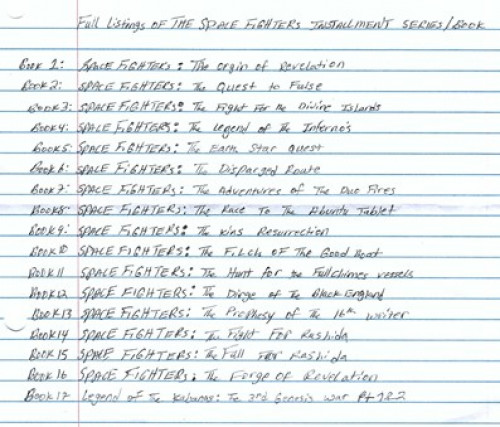 Full Listings of THE SPACE FIGHTERS INSTALLMENT SERIES/BOOK
Book 1: SPACE FIGHTERS: The Orgin of Revelation
Book 2: SPACE FIGHTERS: The Quest to Fulse
Book 3: SPACE FIGHTERS: The Fight For the Divine Islands
Book 4: SPACE FIGHTERS: The Legend of the Inferno's
Book 5: SPACE FIGHTERS: The Earth Star Quest
Book 6: SPACE FIGHTERS: The Disparged Route
Book 7: SPACE FIGHTERS: The Adventures of The Duo Fires
Book 8: SPACE FIGHTERS: The Race To The Tablet
Book 9: SPACE FIGHTERS: The Resurrection
Book 10 SPACE FIGHTERS: The Filch OF The Good
Book 11 SPACE FIGHTERS: The Hunt for the Fullchimes vessels
Book 12 SPACE FIGHTERS: The Dirge of The Black England
Book 13 SPACE FIGHTERS: The Prophesy of The 16th writer
Book 14 SPACE FIGHTERS: The Fight FOR Rashida
Book 15 SPACE FIGHTERS: The Fall FOR Rashida
Book 16 SPACE FIGHTERS: The Forge of Revelation
Book 17 Legend of the The 2nd Genesis War Pt 1&2